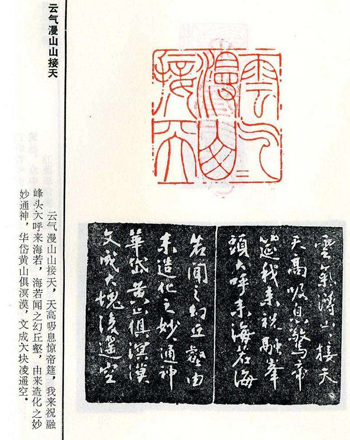 云气漫山山接天
雲气
漫山
接天
雲氣漫山接天
天高吸息驚帝
筵我来祝融峯
頭大呼来海若海
若聞之幻丘壑由
来造化之妙通神
華岱黃山俱溟漠
文成大塊凌遥空
云气漫山山接天，天高吸息惊帝筵，我来祝融
峰头大呼来海若，海若闻之幻丘壑，由来造化之妙
妙通神，华岱黄山俱溟漠，文成大块凌遥空。